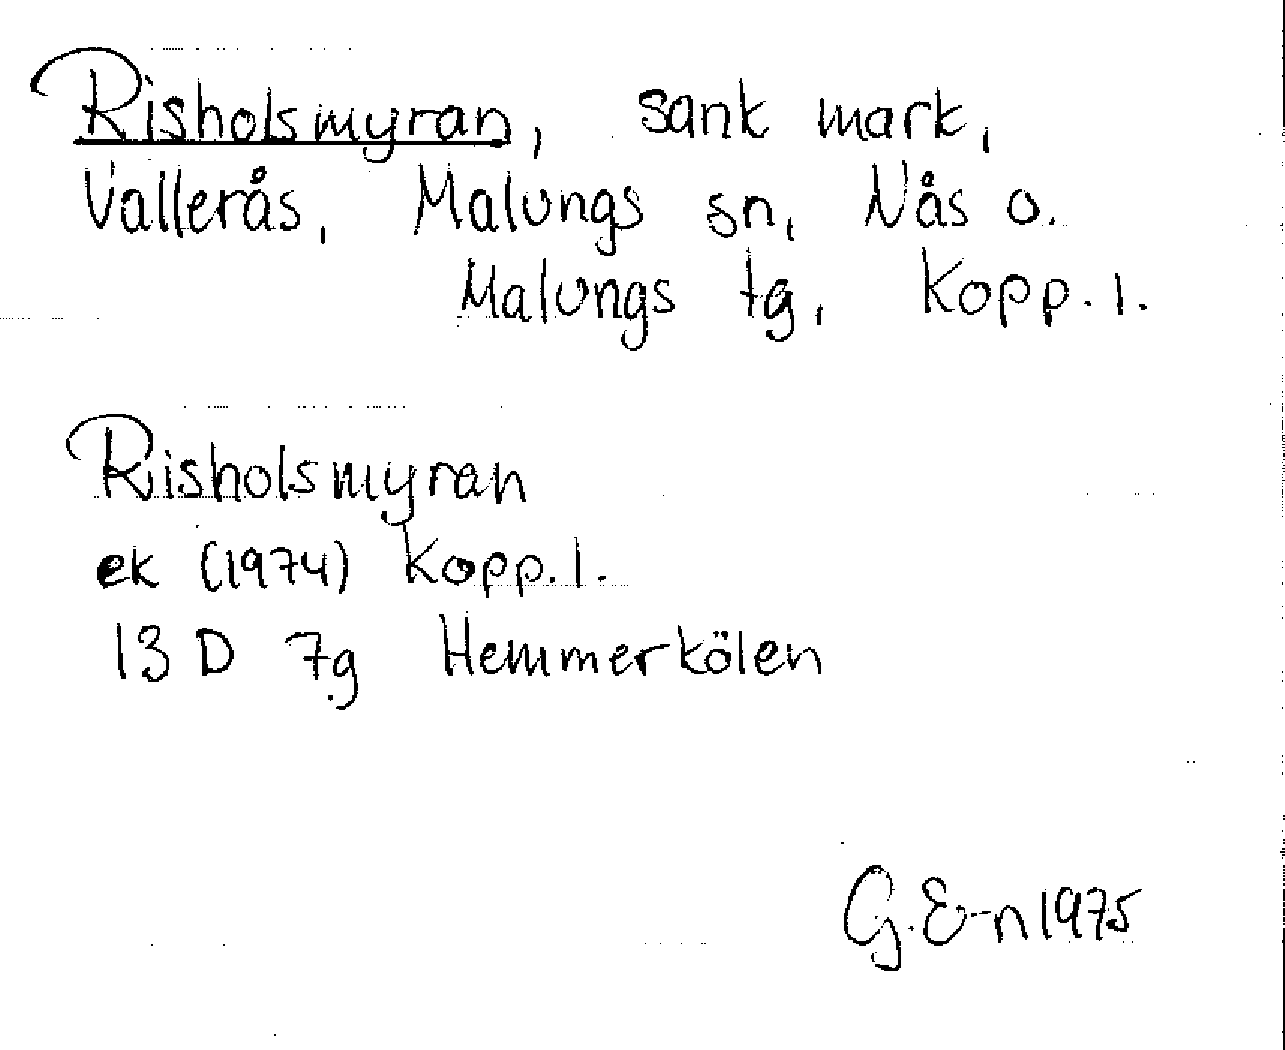 Risholsmyran, sank mark,
Vallerås, Malungs sn, Nås o.
Malungs tg, Kopp. l.
Risholsmyran
ek (1974) Kopp. l.
13 D 7g Hemmerkölen
G. E-n 1975